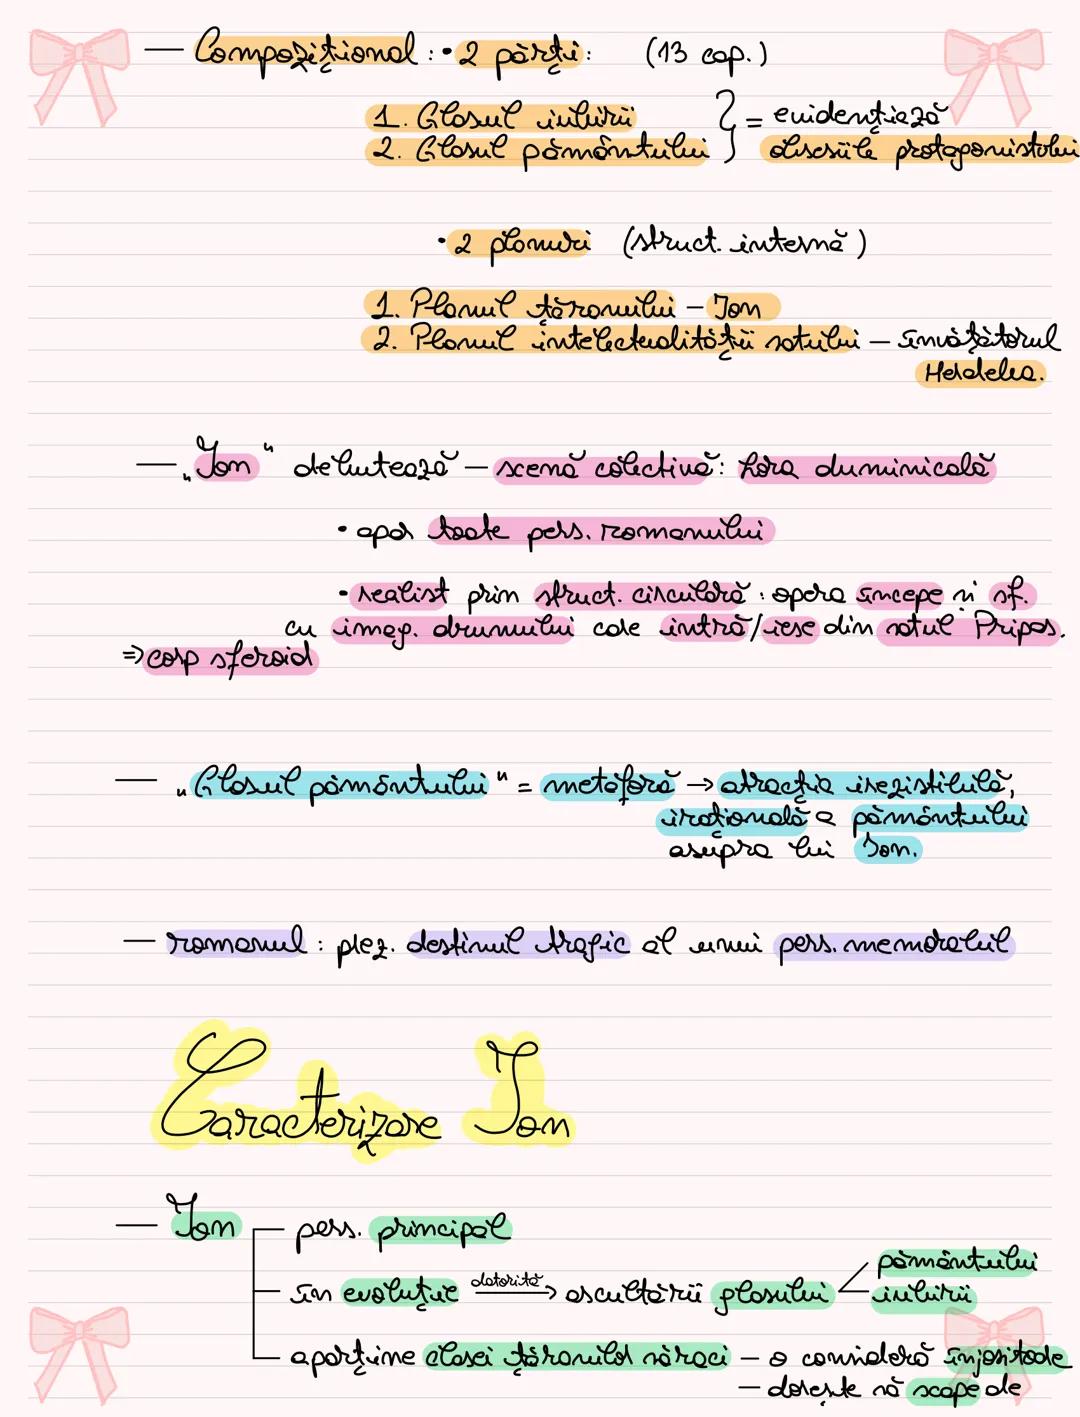 — Compozițional : • 2 părți : (13 cap.)
1. Glasul iubirii } = evidențiază
2. Glasul pământului obsesiile protagonistului
• 2 planuri (struct. internă)
1. Planul țăranului – Ion
2. Planul intelectualității satului – învățătorul
Herdelea.
— „Ion“ debutează – scenă colectivă: hora duminicală
• apar toate pers. romanului
• realist prin struct. circulară : opera începe și sf.
cu imag. drumului care intră/iese din satul Pripas.
⇒ corp sferoid
— „Glasul pământului“ = metaforă → atracția irezistibilă,
irațională a pământului
asupra lui Ion.
— romanul : prez. destinul tragic al unui pers. memorabil
Caracterizare Ion
— Ion pers. principal
pământului
în evoluție datorită → ascultării glasului iubirii
aparține clasei țăranilor săraci – o consideră înjositoare
– dorește să scape de